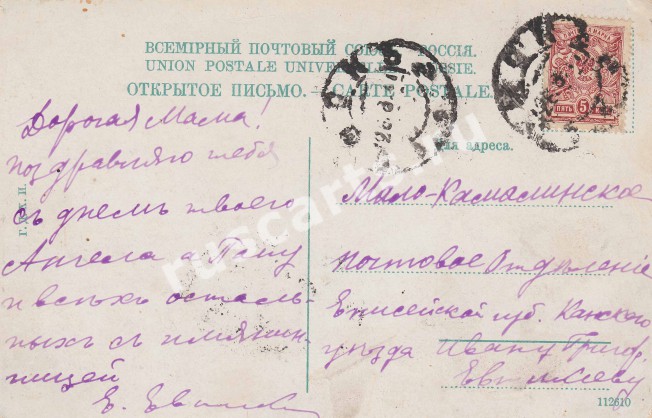 ВСЕМІРНЫЙ ПОЧТОВЫЙ СОЮЗЪ. РОССІЯ.
UNION POSTALE UNIVERSELLE. RUSSIE.
ОТКРЫТОЕ ПИСЬМО. — CARTE POSTALE.
Для адреса.
Дорогая Мама!
поздравляю тебя
съ днемъ твоего
Ангела а Папу
и всѣхъ осталь-
ныхъ съ имянин-
ницей
Е.
Мало-Камалинское
почтовое Отдѣленіе
Енисейской губ. Канскаго
уѣзда Ивану Григор.
Евтихіеву
ПЯТЬ 5
112610
ruscarts.ru